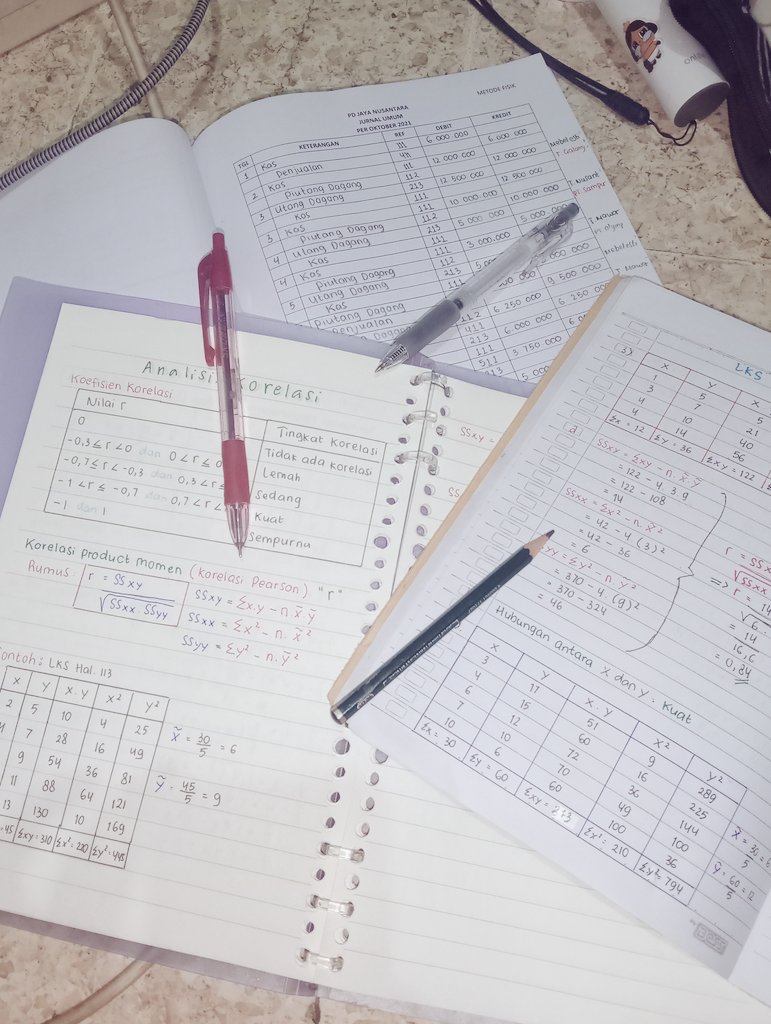 METODE FISIK
PD JAYA NUSANTARA
JURNAL UMUM
PER OKTOBER 2021
TGL KETERANGAN REF DEBIT KREDIT
1 Kas 111 6 000 000
Penjualan 411 6 000 000
2 Kas 111 12 000 000
Piutang Dagang 112 12 000 000
3 Utang Dagang 213 12 500 000
Kas 111 12 500 000
3 Kas 111 10 000 000
Piutang Dagang 112 10 000 000
4 Utang Dagang 213 5 000 000
Kas 111 5 000 000
4 Kas 111 3 000 000
Piutang Dagang 112
5 Utang Dagang 213
Kas 111
Piutang Dagang 112
Penjualan 411
9 500 000
6 250 000
6 250
6 000 000
3 750 000
511
Analisi Korelasi
Koefisien Korelasi
Nilai r Tingkat Korelasi
0 Tidak ada korelasi
-0,3 ≤ r < 0 dan 0 < r ≤ 0 Lemah
-0,7 ≤ r < -0,3 dan 0,3 < r Sedang
-1 < r ≤ -0,7 dan 0,7 < r Kuat
-1 dan 1 Sempurna
Korelasi product momen (korelasi Pearson) "r"
Rumus: r = SSxy
√SSxx. SSyy
SSxy = Σx.y - n. x̄. ȳ
SSxx = Σx² - n. x̄²
SSyy = Σy² - n. ȳ²
Contoh: LKS Hal. 113
X Y X.Y X² Y²
2 5 10 4 25
4 7 28 16 49
9 54 36 81
11 88 64 121
13 130 10 169
45 Σxy = 310 Σx² = 220 Σy² = 445
x̄ = 30/5 = 6
ȳ = 45/5 = 9
SSxy =
LKS
3)
X Y
1 5 5
3 7 21
4 10 40
4 14 56
Σx = 12 Σy = 36 Σxy = 122
a
SSxy = Σxy - n. x̄. ȳ
= 122 - 4. 3. 9
= 122 - 108
= 14
SSxx = Σx² - n. x̄²
= 42 - 4. (3)²
= 42 - 36
= 6
= Σy² - n. ȳ²
= 370 - 4. (9)²
= 370 - 324
= 46
⇒ r = 14
√6.
= 14
16,6
= 0,84
Hubungan antara X dan Y: Kuat
X Y X.Y X² Y²
3 17 51 9 289
4 15 60 16 225
6 12 72 36 144
7 10 70 49 100
10 6 60 100 36
Σx = 30 Σy = 60 Σxy = 313 Σx² = 210 Σy² = 794
ȳ = 60/5 = 12